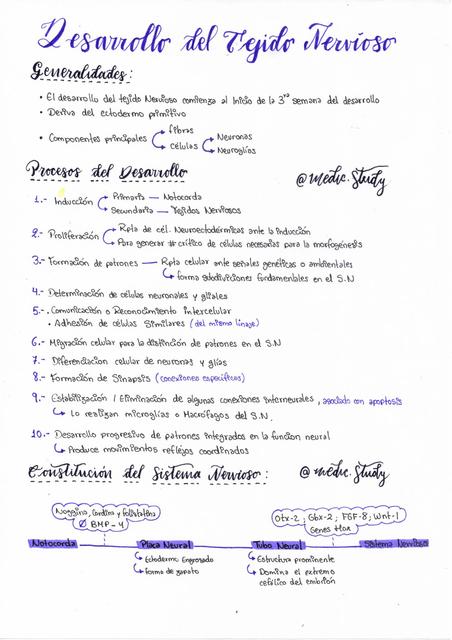 Desarrollo del Tejido Nervioso
Generalidades:
• El desarrollo del tejido Nervioso comienza al inicio de la 3ra semana del desarrollo
• Deriva del ectodermo primitivo
• Componentes principales fibras
células Neuronas
Neuroglías
Procesos del Desarrollo
@medic.study
1.- Inducción Primaria — Notocorda
Secundaria — Tejidos Nerviosos
2.- Proliferación Rpta de cél. Neuroectodérmicas ante la inducción
Para generar # crítico de células necesarias para la morfogénesis
3.- Formación de patrones — Rpta celular ante señales genéticas o ambientales
forma subdivisiones fundamentales en el S.N
4.- Determinación de células neuronales y gliales
5.- Comunicación o Reconocimiento intercelular
• Adhesión de células Similares (del mismo linaje)
6.- Migración celular para la distinción de patrones en el S.N
7.- Diferenciacion celular de neuronas y glías
8.- Formación de Sinapsis (conexiones específicas)
9.- Estabilización / Eliminación de algunas conexiones interneurales, asociado con apoptosis
Lo realizan microglías o Macrófagos del S.N.
10.- Desarrollo progresivo de patrones integrados en la funcion neural
Produce movimientos reflejos coordinados
Constitución del Sistema Nervioso:
@medic.study
Noggina, Cordina y Folistatina
Ø BMP-4
Otx-2; Gbx-2; FGF-8; Wnt-1
Genes Hox
Notocorda Placa Neural Tubo Neural Sistema Nervioso
Ectodermo Engrosado
forma de zapato
Estructura prominente
Domina el extremo
cefálico del embrión